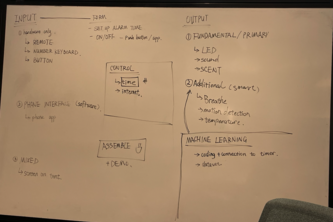 INPUT
① hardware only.
↳ REMOTE
↳ NUMBER KEYBOARD
↳ BUTTON
② PHONE INTERFACE (software)
↳ phone app
③ MIXED
↳ screen on
FORM
- SET UP ALARM TIME
- ON/OFF - Push button / app.
CONTROL
→ time
→ internet.
ASSEMBLE
+ DEMO.
OUTPUT
① FUNDAMENTAL / PRIMARY
↳ LED
↳ sound
↳ SCENT
② Additional (smart)
↳ Breathe
↳ motion detection
↳ temperature.
MACHINE LEARNING
→ coding + connection to
→ dataset